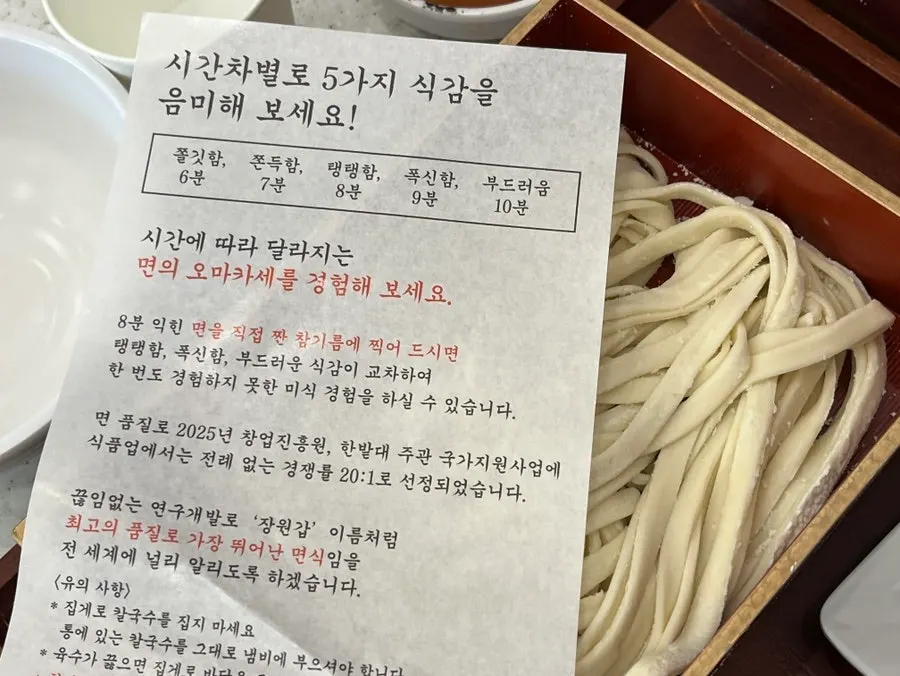 시간차별로 5가지 식감을
음미해 보세요!
쫄깃함, 쫀득함, 탱탱함, 폭신함, 부드러움
6분 7분 8분 9분 10분
시간에 따라 달라지는
면의 오마카세를 경험해 보세요.
8분 익힌 면을 직접 짠 참기름에 찍어 드시면
탱탱함, 폭신함, 부드러운 식감이 교차하여
한 번도 경험하지 못한 미식 경험을 하실 수 있습니다.
면 품질로 2025년 창업진흥원, 한밭대 주관 국가지원사업에
식품업에서는 전례 없는 경쟁률 20:1로 선정되었습니다.
끊임없는 연구개발로 '장원갑' 이름처럼
최고의 품질로 가장 뛰어난 면식임을
전 세계에 널리 알리도록 하겠습니다.
<유의 사항>
* 집게로 칼국수를 집지 마세요
통에 있는 칼국수를 그대로 냄비에 부으셔야 합니다
* 육수가 끓으면 집게로 바닥을